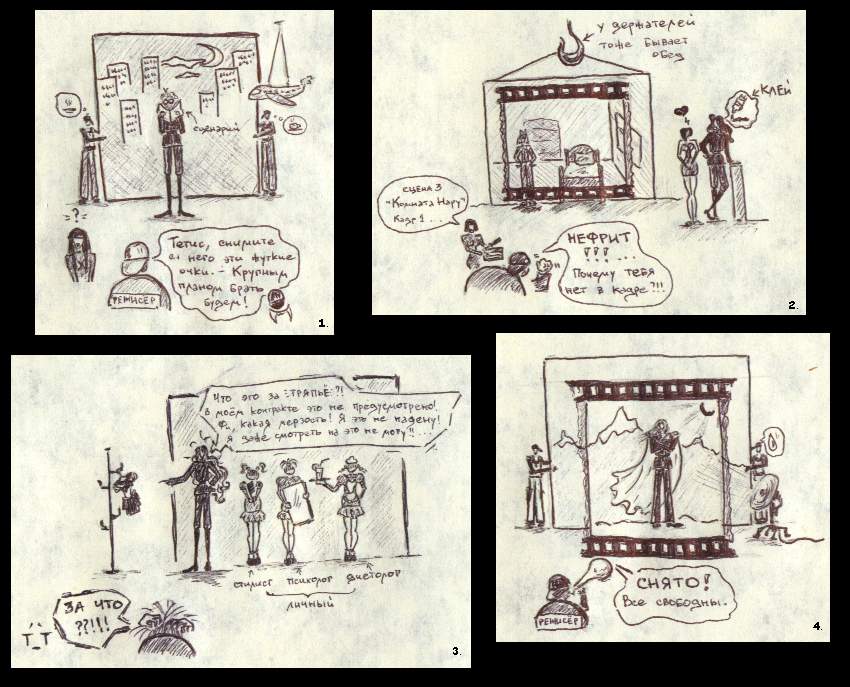 сценарий
= ? =
Тетис, снимите
с него эти жуткие
очки. - Крупным
планом брать
будем!
РЕЖИСЁР
1.
у держателей
тоже бывает
обед
КЛЕЙ
СЦЕНА 3
"Комната Нару"
Кадр 1 ...
НЕФРИТ
!!! ...
Почему тебя
нет в кадре?!!!
2.
Что это за ТРЯПЬЁ?!!
В моём контракте это не предусмотрено!
Фи, какая мерзость! Я это не надену!
Я даже смотреть на это не могу!!...
стилист
психолог
диетолог
личный
ЗА ЧТО
??!!!
T_T
3.
СНЯТО!
Все свободны.
РЕЖИСЁР
4.